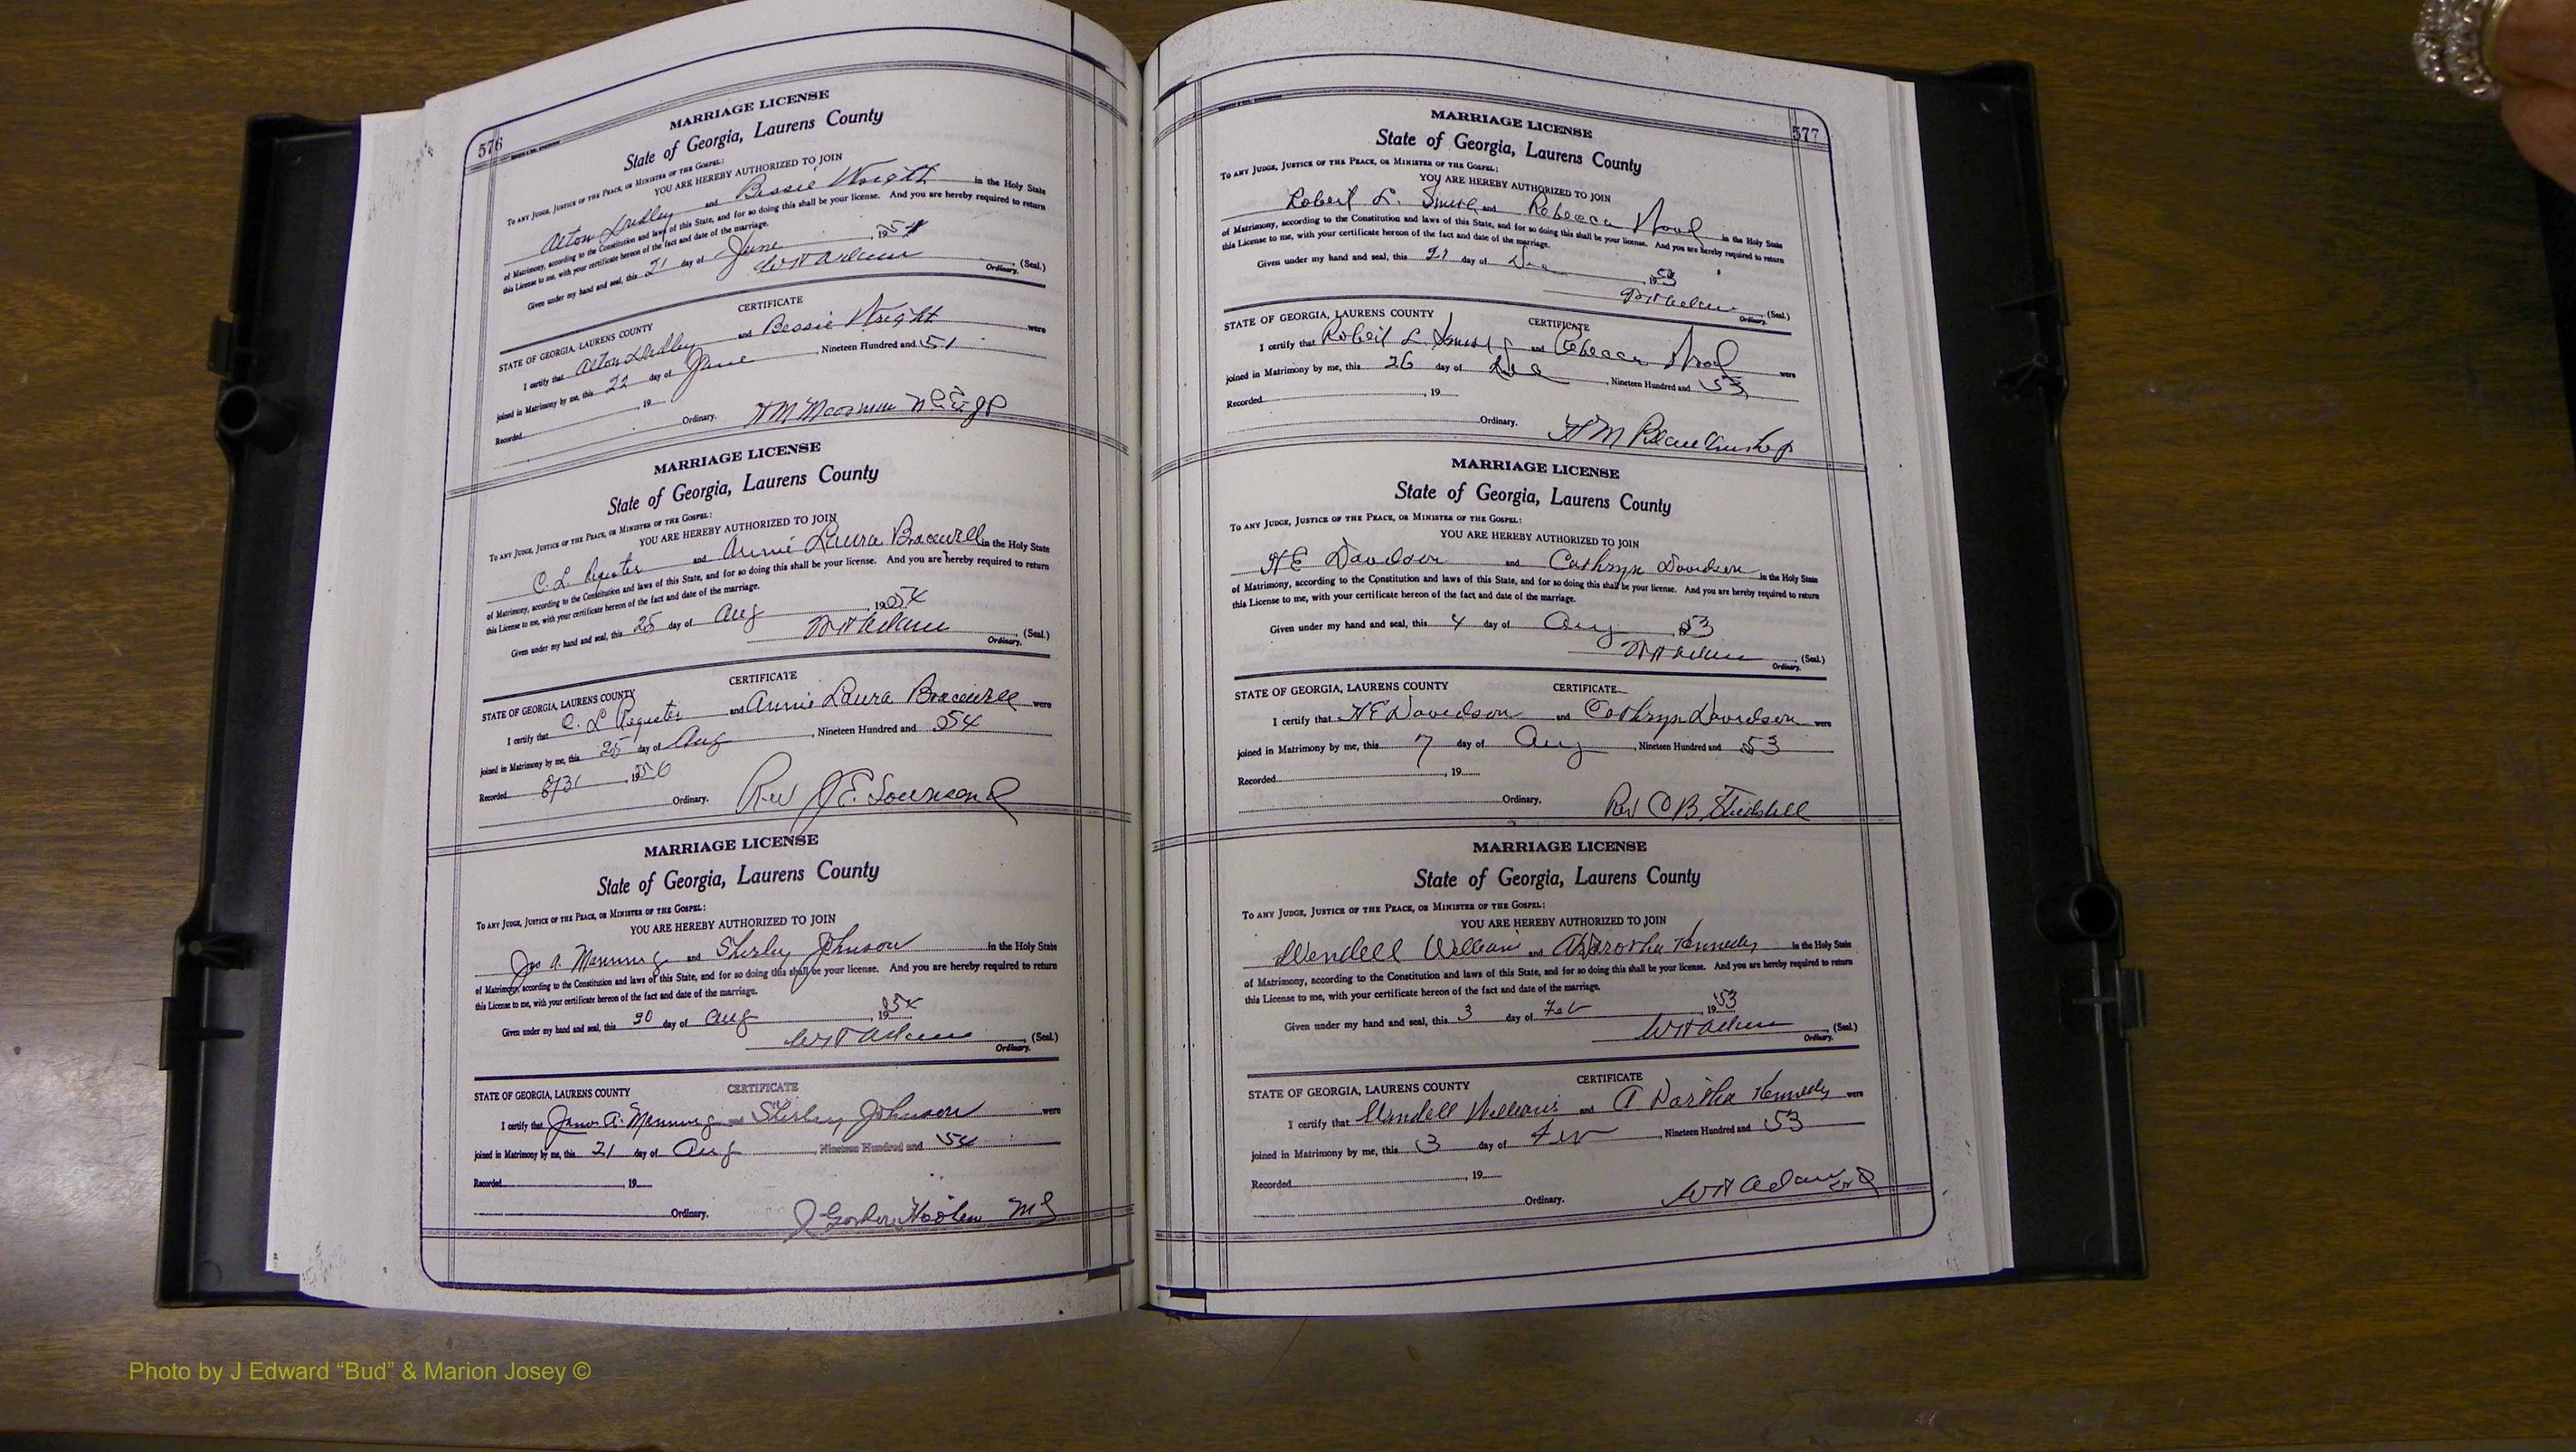 576
MARRIAGE LICENSE
State of Georgia, Laurens County
To any Judge, Justice of the Peace, or Minister of the Gospel:
YOU ARE HEREBY AUTHORIZED TO JOIN
Alton Dudley and Bessie Wright in the Holy State
of Matrimony, according to the Constitution and laws of this State, and for so doing this shall be your license. And you are hereby required to return
this License to me, with your certificate hereon of the fact and date of the marriage.
Given under my hand and seal, this 21 day of June, 195
WH Adams (Seal.)
Ordinary.
CERTIFICATE
STATE OF GEORGIA, LAURENS COUNTY
I certify that Alton Dudley and Bessie Wright were
joined in Matrimony by me, this 22 day of June, Nineteen Hundred and 51
Recorded , 19
Ordinary. HM
MARRIAGE LICENSE
State of Georgia, Laurens County
To any Judge, Justice of the Peace, or Minister of the Gospel:
YOU ARE HEREBY AUTHORIZED TO JOIN
C. L. Register and Annie Laura Bracewell in the Holy State
of Matrimony, according to the Constitution and laws of this State, and for so doing this shall be your license. And you are hereby required to return
this License to me, with your certificate hereon of the fact and date of the marriage.
Given under my hand and seal, this 25 day of Aug, 1954
WH Adams (Seal.)
Ordinary.
CERTIFICATE
STATE OF GEORGIA, LAURENS COUNTY
I certify that C. L Register and Annie Laura Bracewell were
joined in Matrimony by me, this 25 day of Aug, Nineteen Hundred and 54
Recorded 8/31, 19
Ordinary. Rev J E. Townsend
MARRIAGE LICENSE
State of Georgia, Laurens County
To any Judge, Justice of the Peace, or Minister of the Gospel:
YOU ARE HEREBY AUTHORIZED TO JOIN
Jas A. Manning and Shirley Johnson in the Holy State
of Matrimony, according to the Constitution and laws of this State, and for so doing this shall be your license. And you are hereby required to return
this License to me, with your certificate hereon of the fact and date of the marriage.
Given under my hand and seal, this day of Aug, 1954
WH Adams (Seal.)
Ordinary.
CERTIFICATE
STATE OF GEORGIA, LAURENS COUNTY
I certify that James A. Manning and Shirley Johnson were
joined in Matrimony by me, this 21 day of Aug, Nineteen Hundred and 54
Recorded , 19
Ordinary. J Gordon MG
577
MARRIAGE LICENSE
State of Georgia, Laurens County
To any Judge, Justice of the Peace, or Minister of the Gospel:
YOU ARE HEREBY AUTHORIZED TO JOIN
Robert L. Smith and Rebecca Hood in the Holy State
of Matrimony, according to the Constitution and laws of this State, and for so doing this shall be your license. And you are hereby required to return
this License to me, with your certificate hereon of the fact and date of the marriage.
Given under my hand and seal, this 21 day of Dec, 1953
WH Adams (Seal.)
Ordinary.
CERTIFICATE
STATE OF GEORGIA, LAURENS COUNTY
I certify that Robert L. Smith and Rebecca Hood were
joined in Matrimony by me, this 26 day of Dec, Nineteen Hundred and 53
Recorded , 19
Ordinary. HM
MARRIAGE LICENSE
State of Georgia, Laurens County
To any Judge, Justice of the Peace, or Minister of the Gospel:
YOU ARE HEREBY AUTHORIZED TO JOIN
HE Davidson and Cathryn Davidson in the Holy State
of Matrimony, according to the Constitution and laws of this State, and for so doing this shall be your license. And you are hereby required to return
this License to me, with your certificate hereon of the fact and date of the marriage.
Given under my hand and seal, this 4 day of Aug, 1953
WH Adams (Seal.)
Ordinary.
CERTIFICATE
STATE OF GEORGIA, LAURENS COUNTY
I certify that HE Davidson and Cathryn Davidson were
joined in Matrimony by me, this 7 day of Aug, Nineteen Hundred and 53
Recorded , 19
Ordinary. Rev C B
MARRIAGE LICENSE
State of Georgia, Laurens County
To any Judge, Justice of the Peace, or Minister of the Gospel:
YOU ARE HEREBY AUTHORIZED TO JOIN
Wendell Williams and A Dorotha Kennedy in the Holy State
of Matrimony, according to the Constitution and laws of this State, and for so doing this shall be your license. And you are hereby required to return
this License to me, with your certificate hereon of the fact and date of the marriage.
Given under my hand and seal, this 3 day of Feb, 1953
WH Adams (Seal.)
Ordinary.
CERTIFICATE
STATE OF GEORGIA, LAURENS COUNTY
I certify that Wendell Williams and A Kennedy were
joined in Matrimony by me, this 3 day of Feb, Nineteen Hundred and 53
Recorded , 19
Ordinary. WH Adams
Photo by J Edward “Bud” & Marion Josey ©